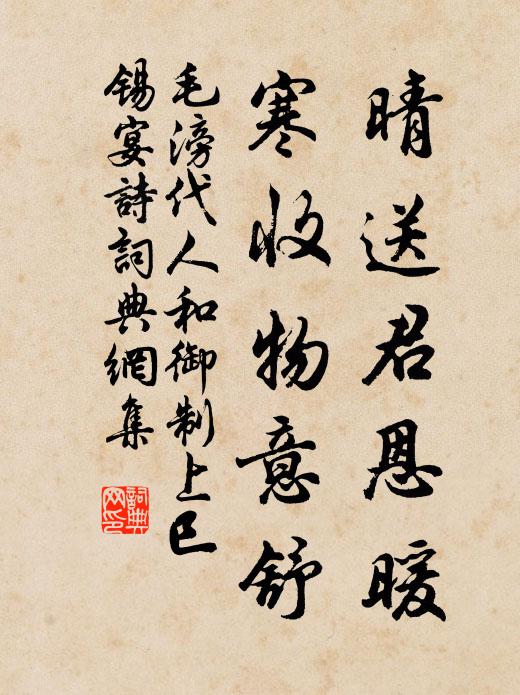 晴送君恩暖
寒收物意舒
毛滂代人和御制上巳
錫宴詩詞典網集
詞典
网印